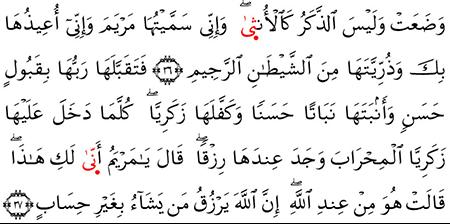 وَضَعَتْ وَلَيْسَ ٱلذَّكَرُ كَٱلْأُنثَىٰ ۖ وَإِنِّى سَمَّيْتُهَا مَرْيَمَ وَإِنِّىٓ أُعِيذُهَا
بِكَ وَذُرِّيَّتَهَا مِنَ ٱلشَّيْطَـٰنِ ٱلرَّجِيمِ ﴿٣٦﴾ فَتَقَبَّلَهَا رَبُّهَا بِقَبُولٍ
حَسَنٍ وَأَنۢبَتَهَا نَبَاتًا حَسَنًا وَكَفَّلَهَا زَكَرِيَّا ۖ كُلَّمَا دَخَلَ عَلَيْهَا
زَكَرِيَّا ٱلْمِحْرَابَ وَجَدَ عِندَهَا رِزْقًا ۖ قَالَ يَـٰمَرْيَمُ أَنَّىٰ لَكِ هَـٰذَا ۖ
قَالَتْ هُوَ مِنْ عِندِ ٱللَّهِ ۖ إِنَّ ٱللَّهَ يَرْزُقُ مَن يَشَآءُ بِغَيْرِ حِسَابٍ ﴿٣٧﴾